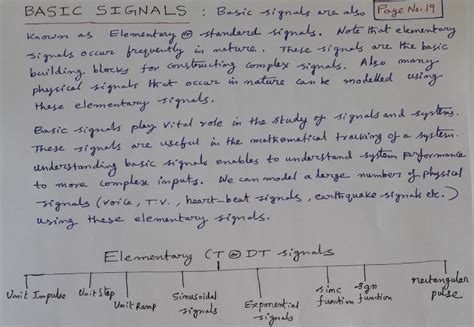 BASIC SIGNALS : Basic signals are also Page No. 19
known as Elementary or standard signals. Note that elementary
signals occur frequently in nature. These signals are the basic
building blocks for constructing complex signals. Also many
physical signals that occur in nature can be modelled using
these elementary signals.
Basic signals play vital role in the study of signals and systems.
These signals are useful in the mathematical tracking of a system.
understanding basic signals enables to understand system performance
to more complex inputs. We can model a large number of physical
signals (voice, T.V., heart-beat signals, earthquake signals etc.)
using these elementary signals.
Elementary CT or DT signals
Unit Impulse
Unit Step
Unit Ramp
Sinusoidal
signals
Exponential
signals
sinc
function
sgn
function
rectangular
pulse